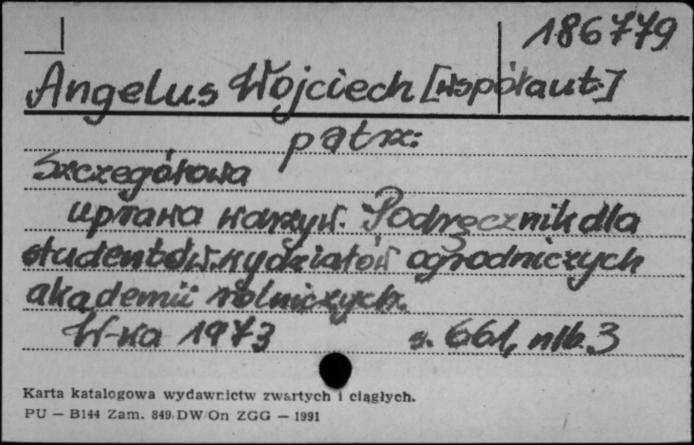 186779
Angelus Wojciech [współaut.]
patrz:
Szczegółowa
uprawa warzyw. Podręcznik dla
studentów wydziałów ogrodniczych
akademii rolniczych.
W-wa 1973 s. 661, nlb. 3
Karta katalogowa wydawnictw zwartych i ciągłych.
PU — B144 Zam. 849/DW/On ZGG — 1991